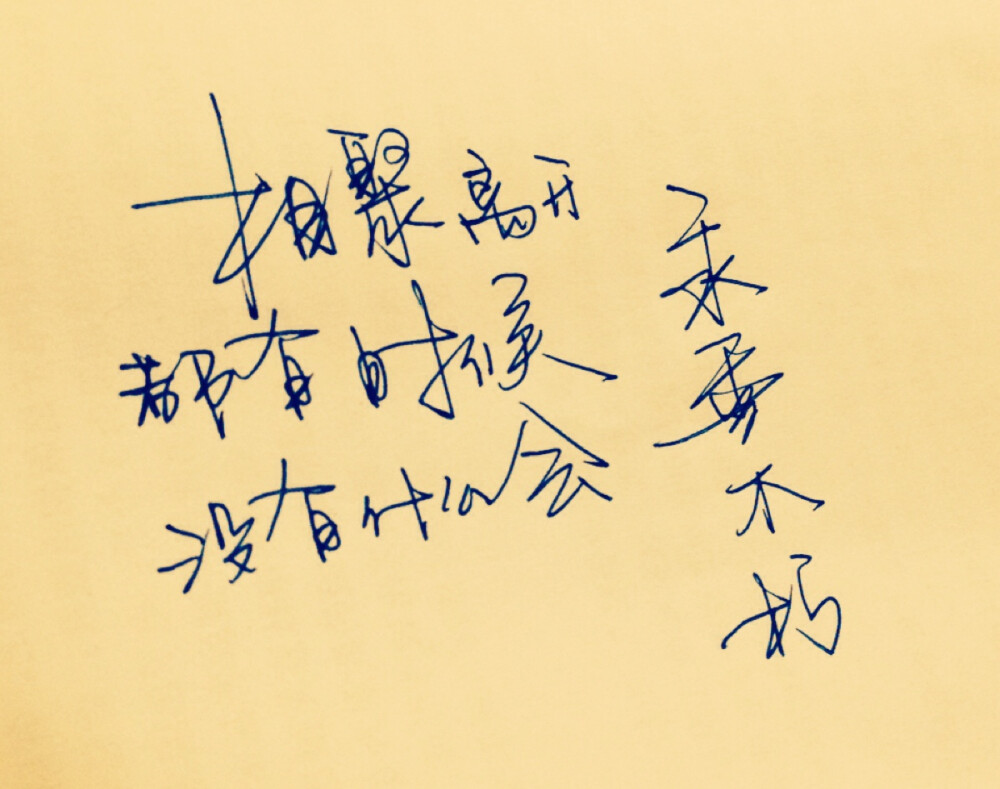 相聚离开
都有时候
没有什么会
永垂不朽